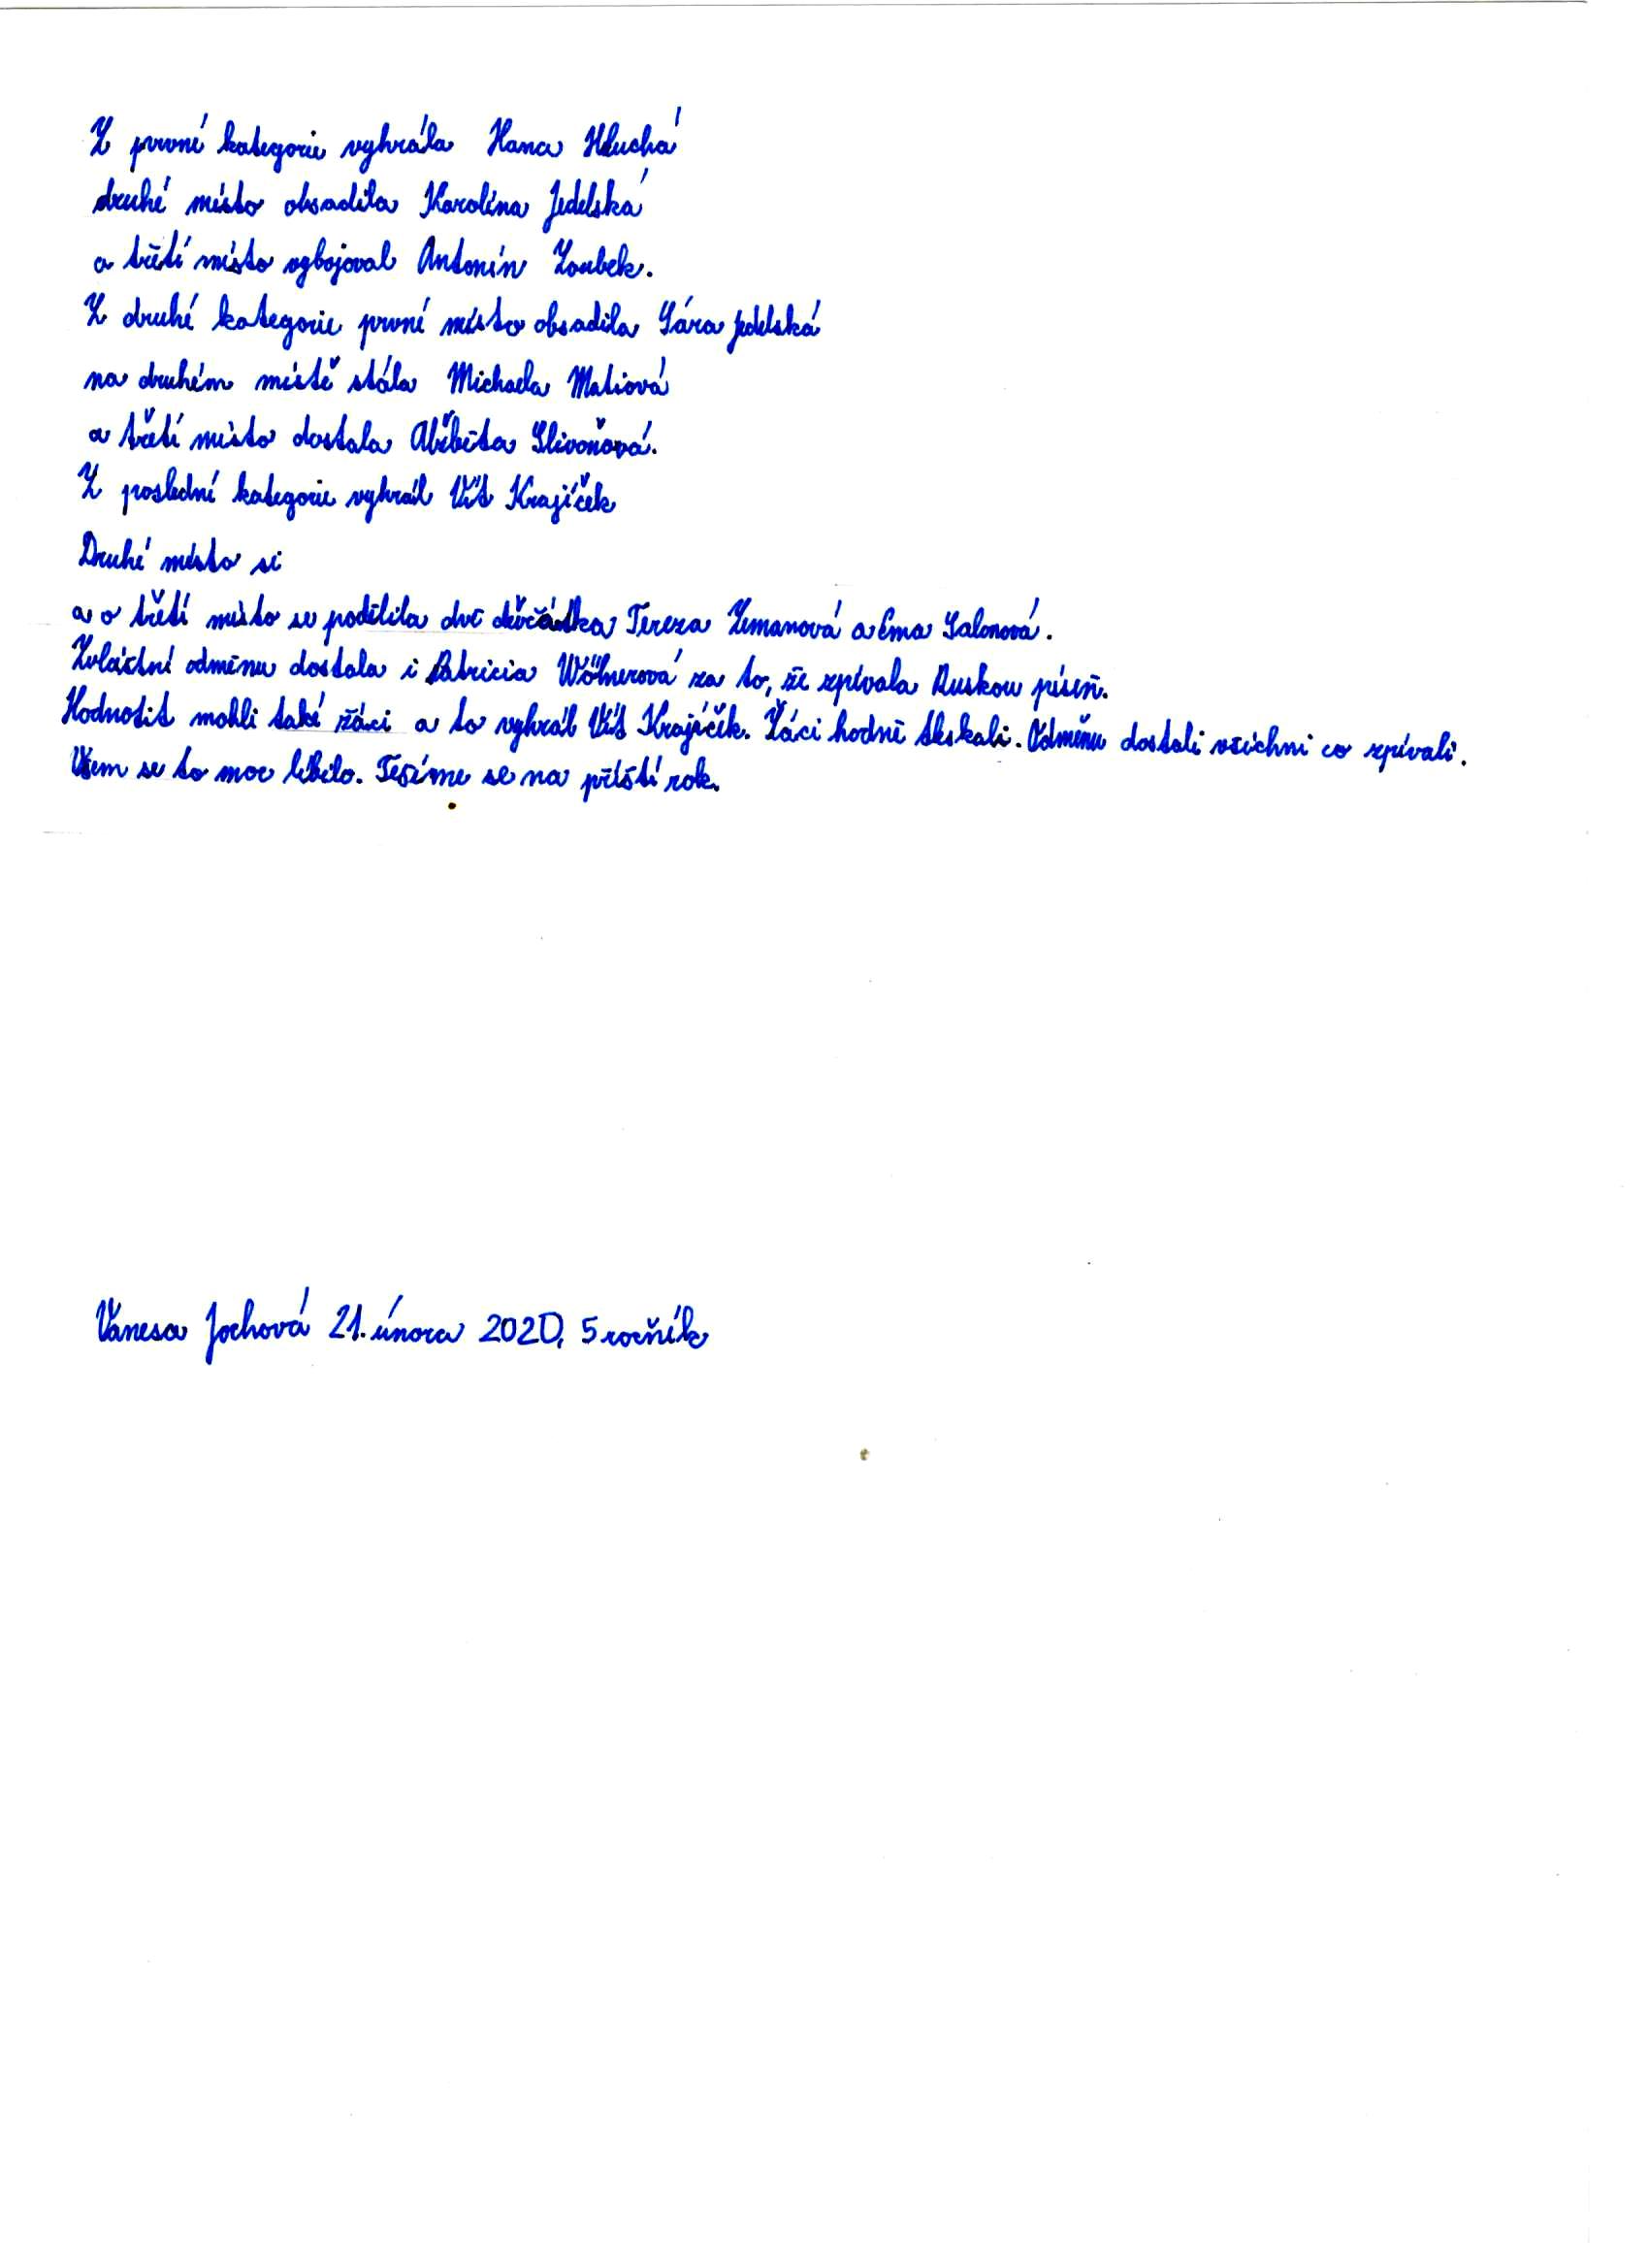 Z první kategorie vyhrála Hana Hluchá
druhé místo obsadila Karolína Jedelská
a třetí místo vybojoval Antonín Zoubek.
Z druhé kategorie první místo obsadila Sára Jedelská
na druhém místě stála Michaela Matiová
a třetí místo dostala Alžběta Slivoňová.
Z poslední kategorie vyhrál Vít Krajíček
Druhé místo si
a o třetí místo se podělila dvě děvčátka Tereza Zemanová a Ema Salonová.
Zvláštní odměnu dostala i Patricia Wölnerová za to, že zpívala Ruskou píseň.
Hodnotit mohli také žáci a to vyhrál Vít Krajíček. Žáci hodně tleskali. Odměnu dostali všichni co zpívali.
Všem se to moc líbilo. Těšíme se na příští rok.
Vanesa Jochová 21. února 2020, 5 ročník